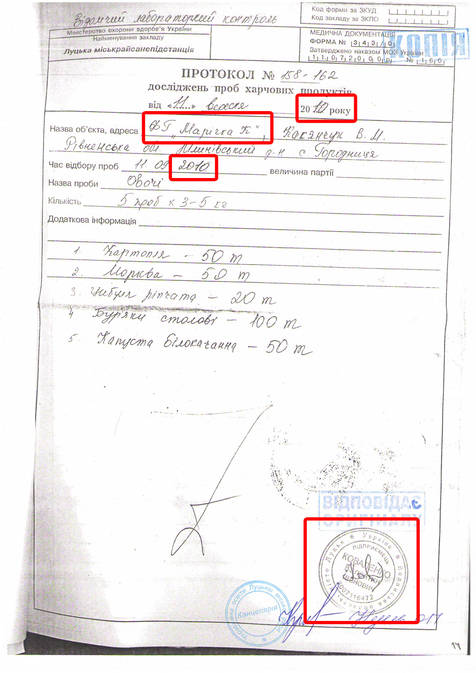 Відомчий лабораторний контроль
Міністерство охорони здоров'я України
Найменування закладу
Луцька міськрайсанепідстанція
Код форми за ЗКУД
Код закладу за ЗКПО
МЕДИЧНА ДОКУМЕНТАЦІЯ
ФОРМА № 3 4 0 / 0
Затверджено наказом МОЗ України
КОПІЯ
ПРОТОКОЛ № 158-162
досліджень проб харчових продуктів
від «11» вересня 2010 року
Назва об'єкта, адреса ФГ "Марічка К", В.М.
Рівненська обл Млинівський р-н с Городниця
Час відбору проб 11 09 2010 величина партії
Назва проби Овочі
Кількість 5 проб х 3-5 кг
Додаткова інформація
1 Картопля – 50 т
2. Морква – 50 т
3 Цибуля ріпчата – 20 т
4 Буряки столові – 100 т
5 Капуста білокачанна – 50 т
ВІДПОВІДАЄ
ОРИГІНАЛУ
Україна
ПІДПРИЄМЕЦЬ
КОВАЛЕНКО
Канцелярія